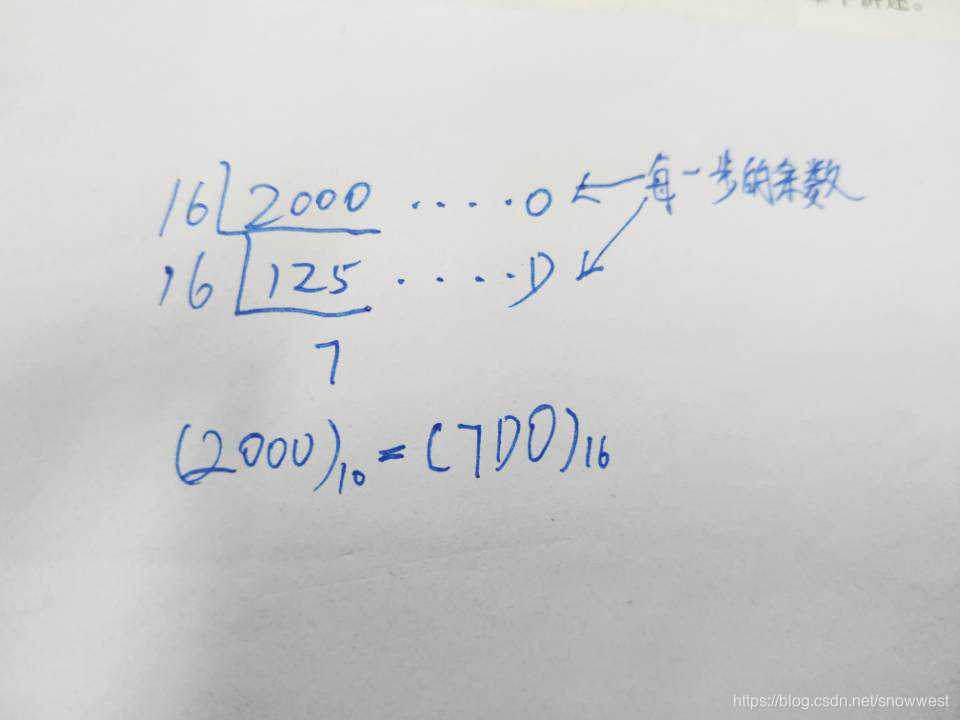 16 2000 ·····0 ← 每一步的余数
16 125 ·····D
7
(2000)₁₀ = (7D0)₁₆
https://blog.csdn.net/snowwest